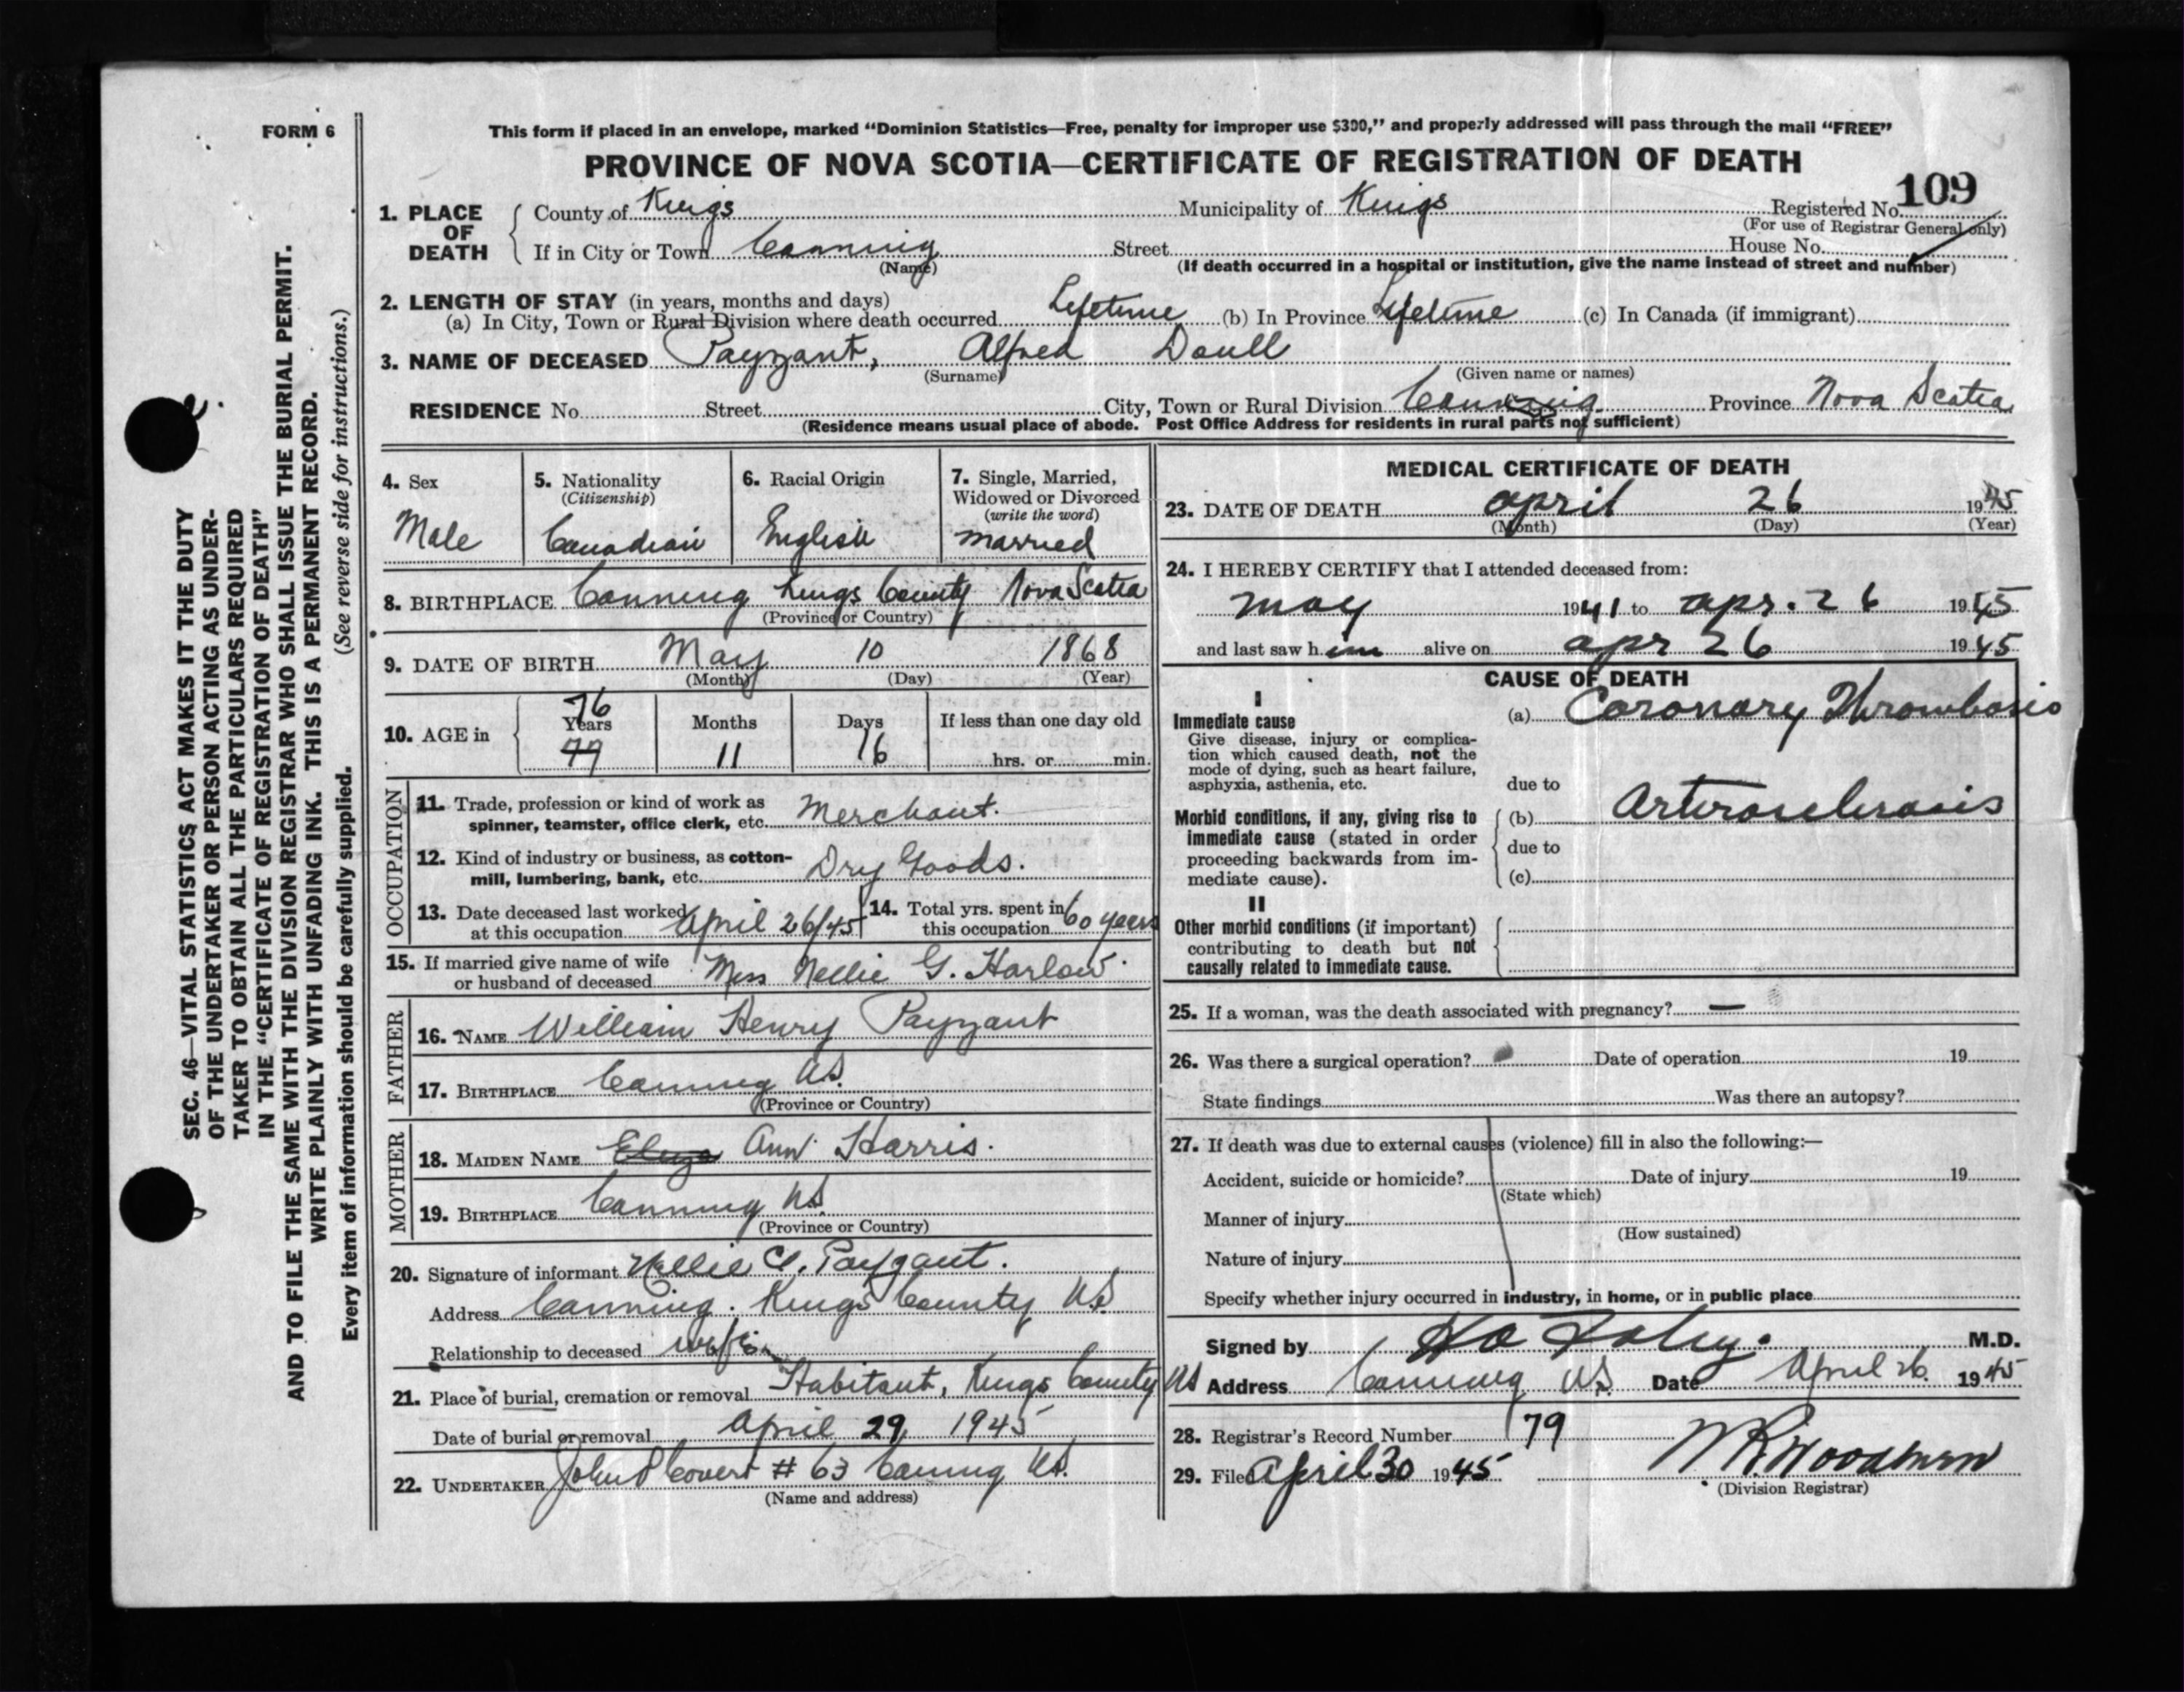 FORM 6
This form if placed in an envelope, marked "Dominion Statistics—Free, penalty for improper use $300," and properly addressed will pass through the mail "FREE"
PROVINCE OF NOVA SCOTIA—CERTIFICATE OF REGISTRATION OF DEATH
109
1. PLACE OF DEATH { County of Kings Municipality of Kings Registered No.
(For use of Registrar General only)
If in City or Town Canning Street House No.
(Name) (If death occurred in a hospital or institution, give the name instead of street and number)
2. LENGTH OF STAY (in years, months and days)
(a) In City, Town or Rural Division where death occurred Lifetime (b) In Province Lifetime (c) In Canada (if immigrant)
3. NAME OF DECEASED Payzant, Alfred Doull
(Surname) (Given name or names)
RESIDENCE No. Street City, Town or Rural Division Canning Province Nova Scotia
(Residence means usual place of abode. Post Office Address for residents in rural parts not sufficient)
4. Sex
Male
5. Nationality
(Citizenship)
Canadian
6. Racial Origin
English
7. Single, Married,
Widowed or Divorced
(write the word)
married
8. BIRTHPLACE Canning Kings County Nova Scotia
(Province or Country)
9. DATE OF BIRTH May 10 1868
(Month) (Day) (Year)
10. AGE in { 76
Years Months Days If less than one day old
77 11 16 hrs. or min.
OCCUPATION
11. Trade, profession or kind of work as
spinner, teamster, office clerk, etc. Merchant.
12. Kind of industry or business, as cotton-
mill, lumbering, bank, etc. Dry Goods.
13. Date deceased last worked
at this occupation April 26/45
14. Total yrs. spent in
this occupation 60 years
15. If married give name of wife
or husband of deceased Miss Nellie G. Harlow.
FATHER
16. NAME William Henry Payzant
17. BIRTHPLACE Canning NS.
(Province or Country)
MOTHER
18. MAIDEN NAME Eliza Ann Harris.
19. BIRTHPLACE Canning NS.
(Province or Country)
20. Signature of informant Nellie G. Payzant.
Address Canning. Kings County NS
Relationship to deceased wife
21. Place of burial, cremation or removal Habitant, Kings County NS
Date of burial or removal April 29, 1945
22. UNDERTAKER John Covert # 63 Canning NS.
(Name and address)
MEDICAL CERTIFICATE OF DEATH
23. DATE OF DEATH April 26 1945
(Month) (Day) (Year)
24. I HEREBY CERTIFY that I attended deceased from:
may 1941 to apr. 26 1945
and last saw him alive on apr 26 1945
CAUSE OF DEATH
I
Immediate cause
Give disease, injury or complica-
tion which caused death, not the
mode of dying, such as heart failure,
asphyxia, asthenia, etc.
(a) Coronary Thrombosis
due to
Morbid conditions, if any, giving rise to
immediate cause (stated in order
proceeding backwards from im-
mediate cause).
(b) Arteriosclerosis
due to
(c)
II
Other morbid conditions (if important)
contributing to death but not
causally related to immediate cause.
25. If a woman, was the death associated with pregnancy? —
26. Was there a surgical operation? Date of operation 19
State findings Was there an autopsy?
27. If death was due to external causes (violence) fill in also the following:—
Accident, suicide or homicide? Date of injury 19
(State which)
Manner of injury
(How sustained)
Nature of injury
Specify whether injury occurred in industry, in home, or in public place
Signed by M.D.
Address Canning NS. Date April 26 1945
28. Registrar's Record Number 79
29. Filed April 30 1945 Woodburn
(Division Registrar)
SEC. 46—VITAL STATISTICS ACT MAKES IT THE DUTY
OF THE UNDERTAKER OR PERSON ACTING AS UNDER-
TAKER TO OBTAIN ALL THE PARTICULARS REQUIRED
IN THE "CERTIFICATE OF REGISTRATION OF DEATH"
AND TO FILE THE SAME WITH THE DIVISION REGISTRAR WHO SHALL ISSUE THE BURIAL PERMIT.
WRITE PLAINLY WITH UNFADING INK. THIS IS A PERMANENT RECORD.
Every item of information should be carefully supplied. (See reverse side for instructions.)